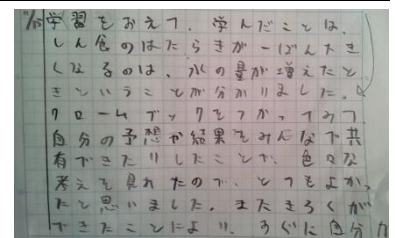 11/15 学習をおえて、学んだことは、
しん食のはたらきが一ばん大き
くなるのは、水の量が増えたと
きということが分かりました。
クロームブックをつかってみて
自分の予想や結果をみんなで共
有できたりしたことで、色々な
考えを見れたので、とてもよかっ
たと思いました。またきろくが
できたことにより、すぐに自分